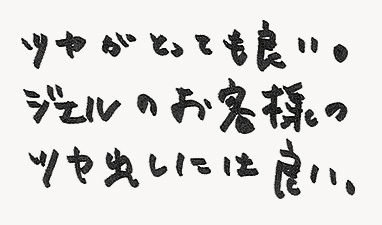 ツヤがとっても良い。
ジェルのお客様の
ツヤ出しには良い、